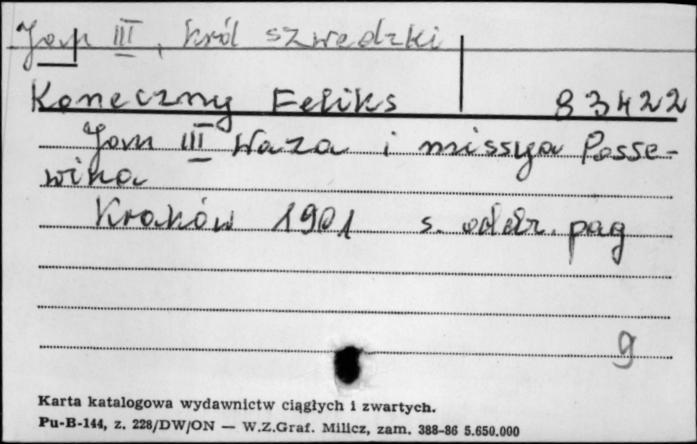 Jan III, król szwedzki
Koneczny Feliks 83422
Jan III Waza i missya Posse-
wina
Kraków 1901 s. oddz. pag
9
Karta katalogowa wydawnictw ciągłych i zwartych.
Pu-B-144, z. 228/DW/ON — W.Z.Graf. Milicz, zam. 388-86 5.650.000